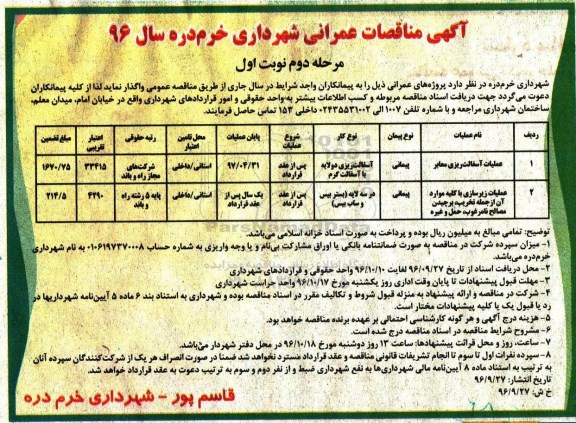 آگهی مناقصات عمرانی شهرداری خرم‌دره سال ۹۶
مرحله دوم نوبت اول
شهرداری خرم‌دره در نظر دارد پروژه‌های عمرانی ذیل را به پیمانکاران واجد شرایط در سال جاری از طریق مناقصه عمومی واگذار نماید لذا از کلیه پیمانکاران
دعوت می‌گردد جهت دریافت اسناد مناقصه مربوطه و کسب اطلاعات بیشتر به واحد حقوقی و امور قراردادهای شهرداری واقع در خیابان امام، میدان معلم،
ساختمان شهرداری مراجعه و با شماره تلفن ۱۰۰۷ الی ۰۲۴۳۵۵۳۱۰۰۲ داخلی ۱۵۳ تماس حاصل فرمایند.
ردیف نام عملیات نوع پیمان نوع کار شروع عملیات پایان عملیات محل تامین اعتبار رتبه حقوقی اعتبار تقریبی مبلغ تضمین
۱ عملیات آسفالت‌ریزی معابر پیمانی آسفالت‌ریزی دولایه با آسفالت گرم پس از عقد قرارداد ۹۷/۰۴/۳۱ استانی/داخلی شرکت‌های مجاز راه و باند ۳۳۴۱۵ ۱۶۷۰/۷۵
۲ عملیات زیرسازی با کلیه موارد آن ازجمله تخریب، برچیدن مصالح نامرغوب، حمل و غیره پیمانی در سه لایه (بستر بیس و ساب بیس) پس از عقد قرارداد یک سال پس از عقد قرارداد استانی/داخلی پایه ۵ رشته راه و باند ۴۲۹۰ ۲۱۴/۵
توضیح: تمامی مبالغ به میلیون ریال بوده و پرداخت به صورت اسناد خزانه اسلامی می‌باشد.
۱- میزان سپرده شرکت در مناقصه به صورت ضمانتنامه بانکی یا اوراق مشارکت بی‌نام و یا وجه واریزی به شماره حساب ۰۱۰۶۱۹۷۳۷۰۰۰۸ به نام شهرداری
خرم‌دره می‌باشد.
۲- محل دریافت اسناد از تاریخ ۹۶/۰۹/۲۷ لغایت ۹۶/۱۰/۱۰ واحد حقوقی و قراردادهای شهرداری
۳- مهلت قبول پیشنهادات تا پایان وقت اداری روز یکشنبه مورخ ۹۶/۱۰/۱۷ واحد حراست شهرداری
۴- شرکت در مناقصه و ارائه پیشنهاد به منزله قبول شروط و تکالیف مقرر در اسناد مناقصه بوده و شهرداری به استناد بند ۶ ماده ۵ آیین‌نامه شهرداریها در
رد یا قبول یک یا کلیه پیشنهادات مختار است.
۵- هزینه درج آگهی و هر گونه کارشناسی احتمالی بر عهده برنده مناقصه خواهد بود.
۶- مشروح شرایط مناقصه در اسناد مناقصه درج شده است.
۷- ساعت، روز و محل قرائت پیشنهادها: ساعت ۱۳ روز دوشنبه مورخ ۹۶/۱۰/۱۸ در محل دفتر شهردار می‌باشد.
۸- سپرده نفرات اول تا سوم تا انجام تشریفات قانونی مناقصه و عقد قرارداد مسترد نخواهد شد ضمنا در صورت انصراف هر یک از شرکت‌کنندگان سپرده آنان
به ترتیب به استناد ماده ۸ آیین‌نامه مالی شهرداری‌ها به نفع شهرداری ضبط و از نفر دوم و سوم به ترتیب دعوت به عقد قرارداد خواهد شد.
تاریخ انتشار: ۹۶/۹/۲۷
خ ش: ۹۶/۹/۲۷
قاسم پور - شهرداری خرم دره